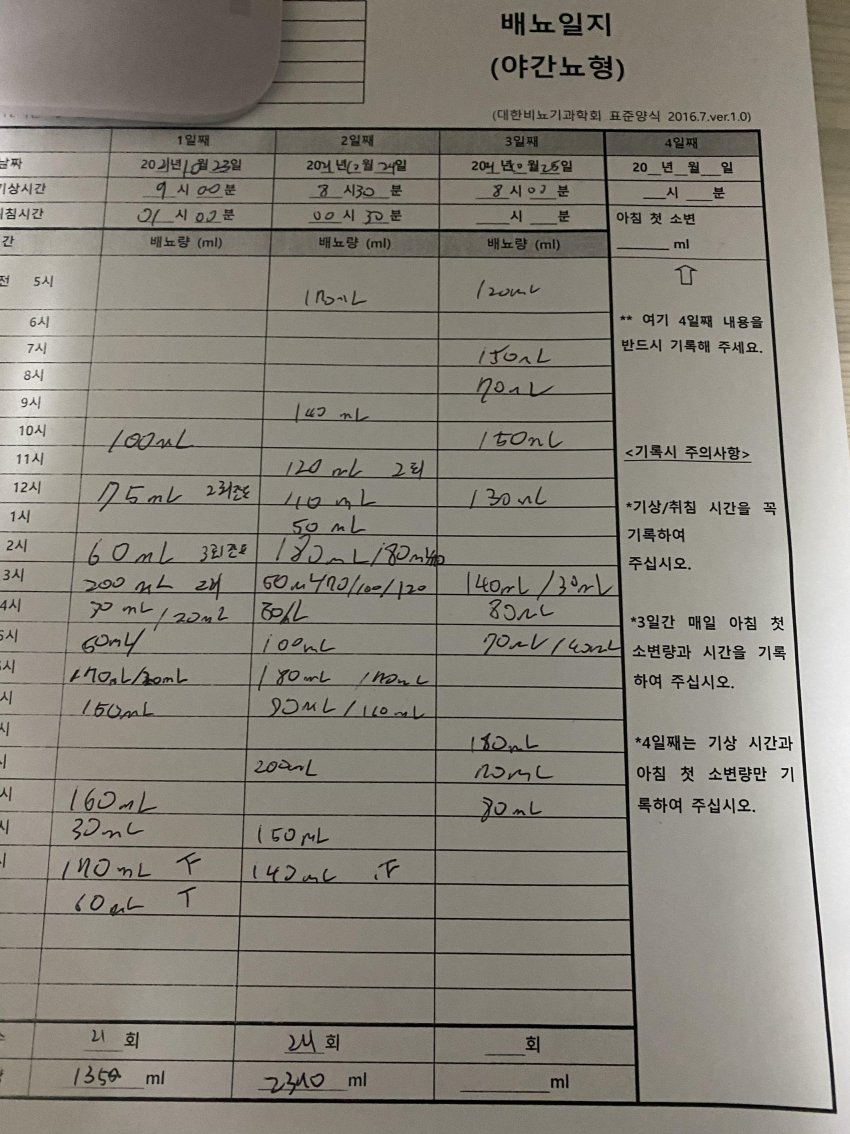 배뇨일지
(야간뇨형)
(대한비뇨기과학회 표준양식 2016.7.ver.1.0)
1일째 2일째 3일째 4일째
날짜 2021년 10월 23일 2021년 10월 24일 2021년 10월 25일 20__년__월__일
기상시간 9시 00분 8시 30분 8시 00분 __시 __분
취침시간 01시 00분 00시 30분 __시 __분 아침 첫 소변
간 배뇨량 (ml) 배뇨량 (ml) 배뇨량 (ml) ______ ml
전 5시 120mL
6시 ** 여기 4일째 내용을
7시 150mL 반드시 기록해 주세요.
8시 70mL
9시 140 mL
10시 100mL 150mL
11시 120 mL 2회 <기록시 주의사항>
12시 75mL 2회정도 110 mL 130mL
1시 50 mL *기상/취침 시간을 꼭
기록하여
2시 60mL 3회정도 180mL/180mL
주십시오.
3시 200mL 2회 50mL/70/100/120 140mL/30mL
4시 30mL/20mL 80mL 80mL
*3일간 매일 아침 첫
5시 50ml 100mL 70mL/40mL
소변량과 시간을 기록
시 170mL/30mL 180mL /170mL
하여 주십시오.
시 150mL 90mL/160mL
시 180mL
*4일째는 기상 시간과
시 200mL 70mL
아침 첫 소변량만 기
시 160mL 80mL
록하여 주십시오.
시 30mL 150mL
시 170mL T 140mL T
60mL T
21 회 24 회 ___회
1350 ml 2340 ml ______ml